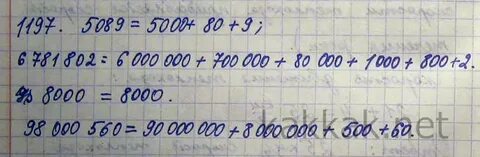 1197. 5089 = 5000 + 80 + 9;
6 781 802 = 6 000 000 + 700 000 + 80 000 + 1000 + 800 + 2.
8000 = 8000.
98 000 560 = 90 000 000 + 8 000 000 + 500 + 60.
kakkak.net